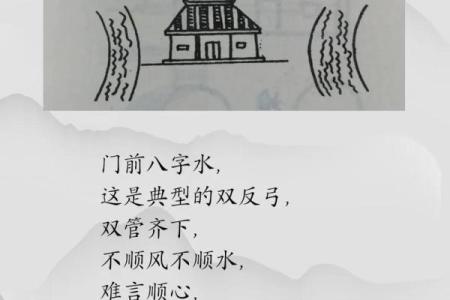 门前八字水，
这是典型的双反弓，
双管齐下，
不顺风不顺水，
难言顺心，